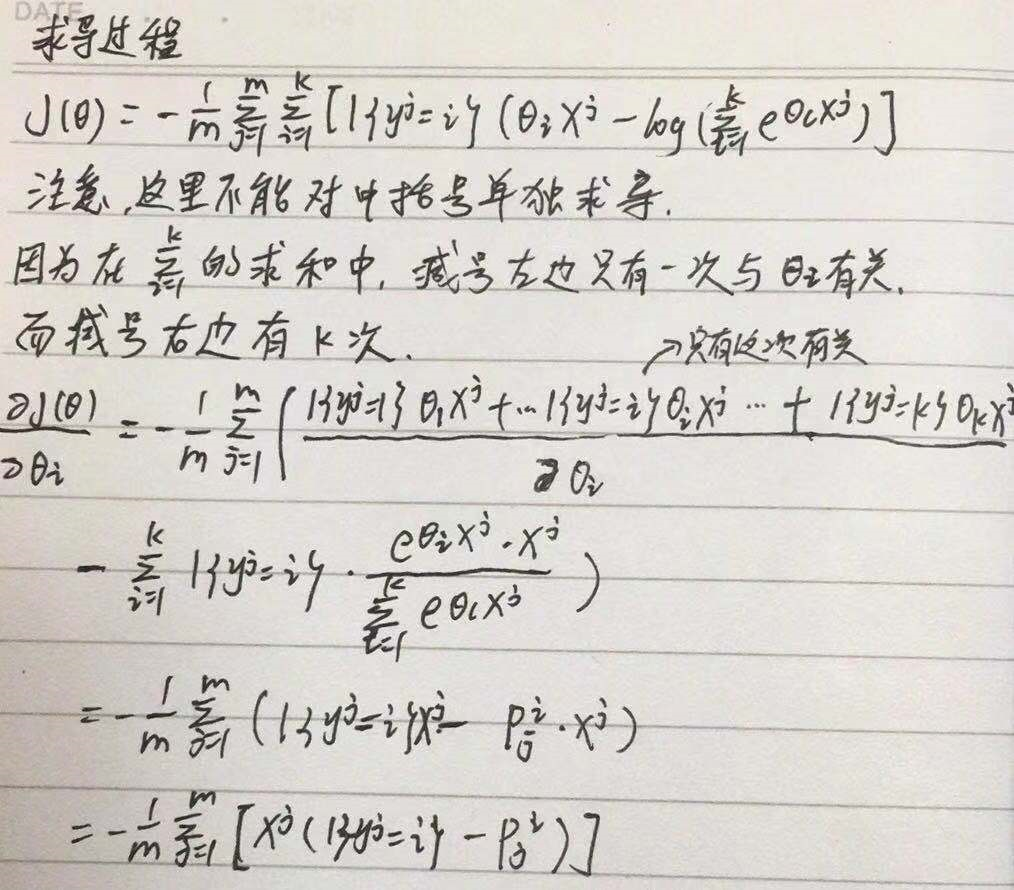 DATE
求导过程
J(θ) = -1/m Σ_{j=1}^{m} Σ_{i=1}^{k} [1{y^j=i} (θ_i x^j - log(Σ_{l=1}^{k} e^{θ_l x^j})]
注意,这里不能对中括号单独求导.
因为在 Σ_{i=1}^{k} 的求和中,减号左边只有一次与 θ_i 有关,
而减号右边有 k 次.
→只有这次有关
∂J(θ)/∂θ_i = -1/m Σ_{j=1}^{m} ( (1{y^j=1} θ_1 x^j + … 1{y^j=i} θ_i x^j … + 1{y^j=k} θ_k x^j)/∂θ_i
- Σ_{i=1}^{k} 1{y^j=i} · (e^{θ_i x^j} · x^j)/(Σ_{l=1}^{k} e^{θ_l x^j}) )
= -1/m Σ_{j=1}^{m} (1{y^j=i} x^j - P_j^i · x^j)
= -1/m Σ_{j=1}^{m} [x^j (1{y^j=i} - P_j^i)]